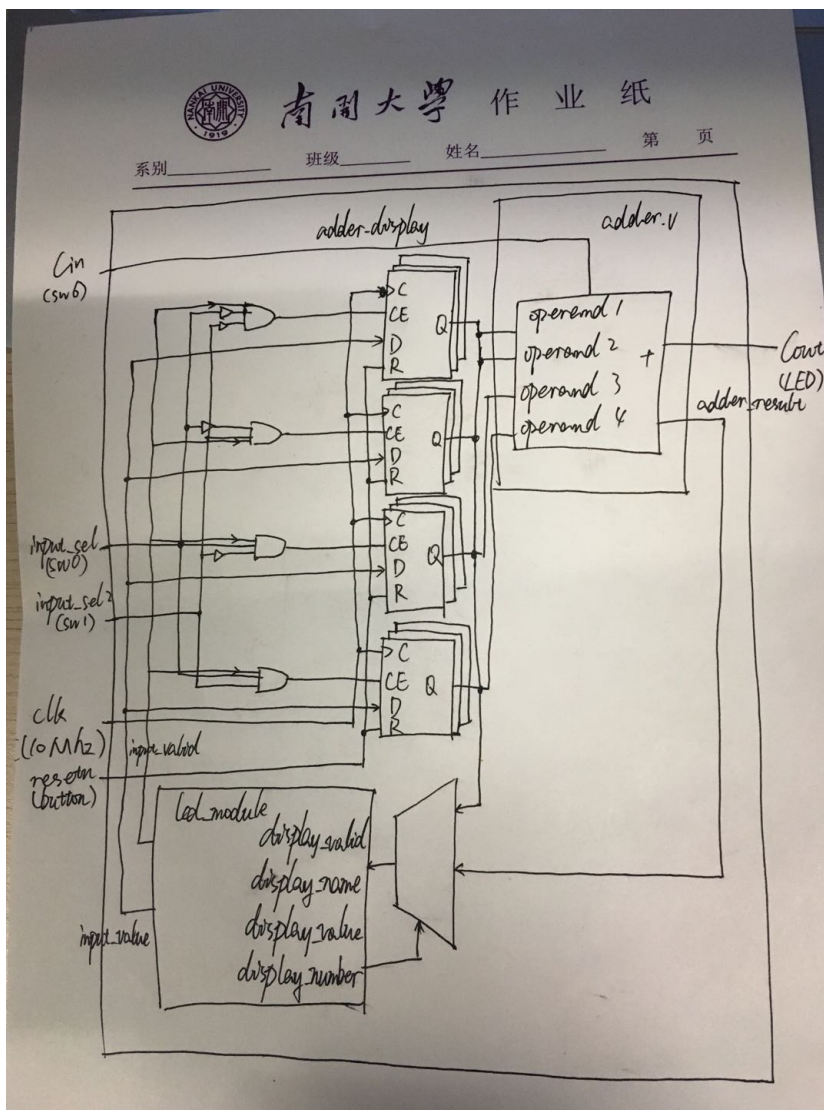 NANKAI UNIVERSITY
1919
南開大學 作业纸
系别 班级 姓名 第 页
adder_display
adder.v
Cin
(sw6)
C
CE
D
R
Q
C
CE
D
R
Q
C
CE
D
R
Q
C
CE
D
R
Q
operand 1
operand 2
operand 3
operand 4
+
Cout
(LED)
adder_result
input_sel
(sw0)
input_sel2
(sw1)
clk
(10Mhz)
input_valid
resetn
(button)
lcd_module
display_valid
display_name
display_value
display_number
input_value